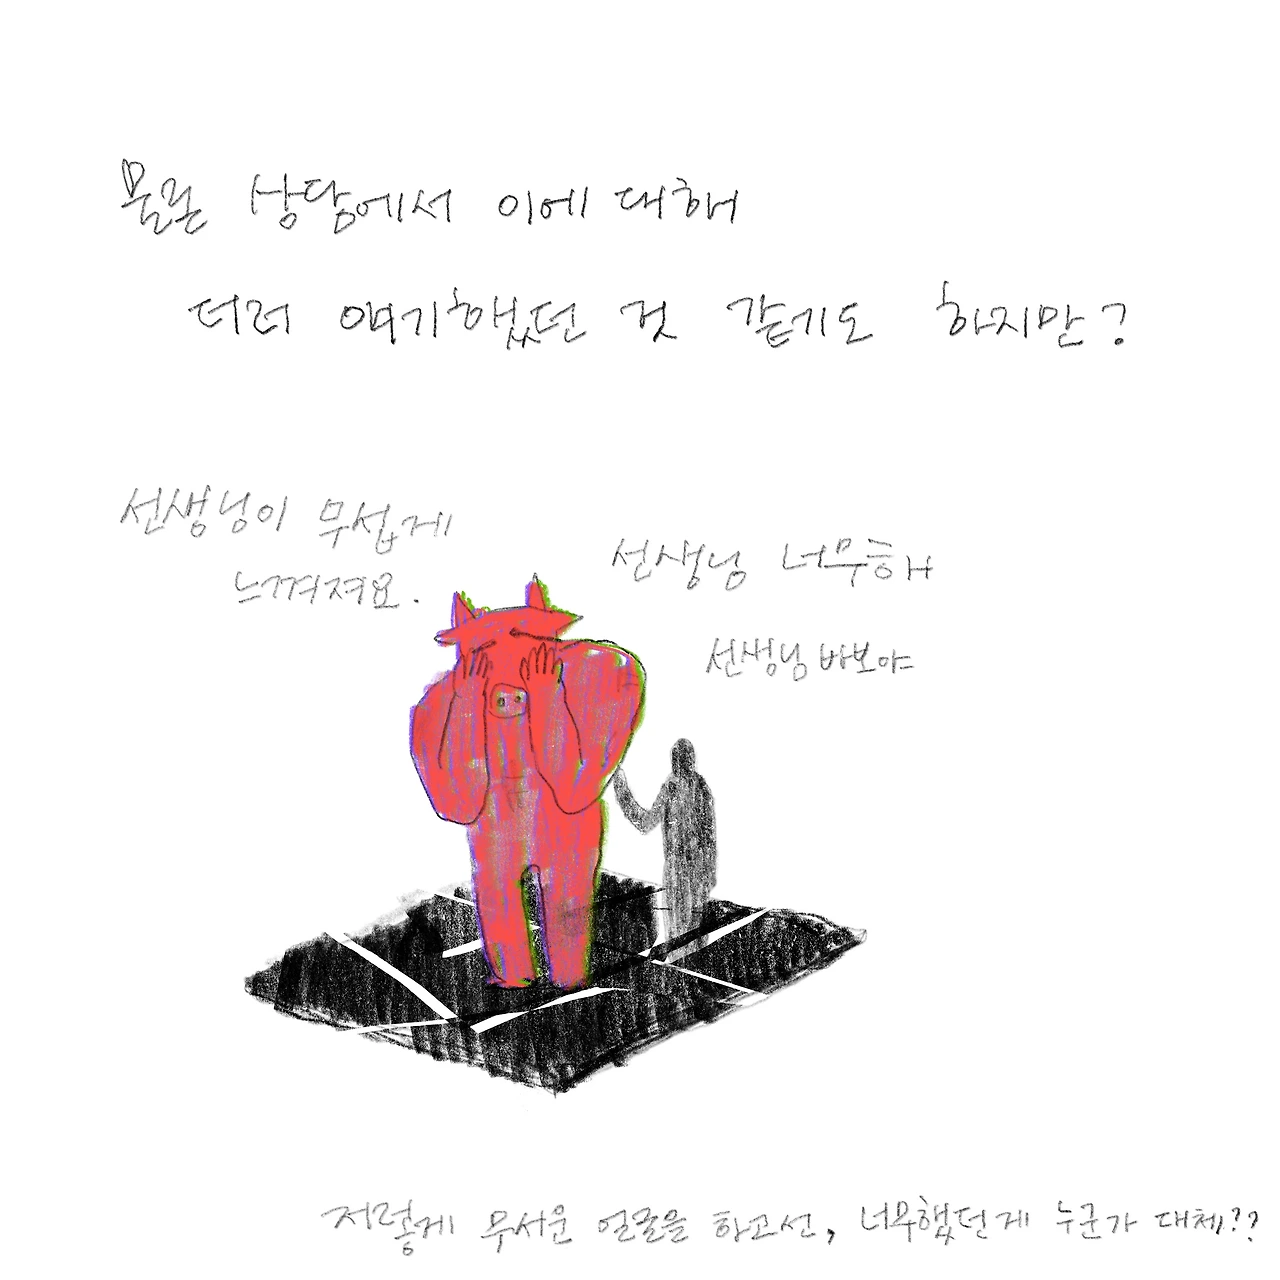 물론 상담에서 이에 대해
더러 얘기했던 것 같기도 하지만?
선생님이 무섭게
느껴져요.
선생님 너무해
선생님 바보야
저렇게 무서운 얼굴을 하고선, 너무했던게 누군가 대체??